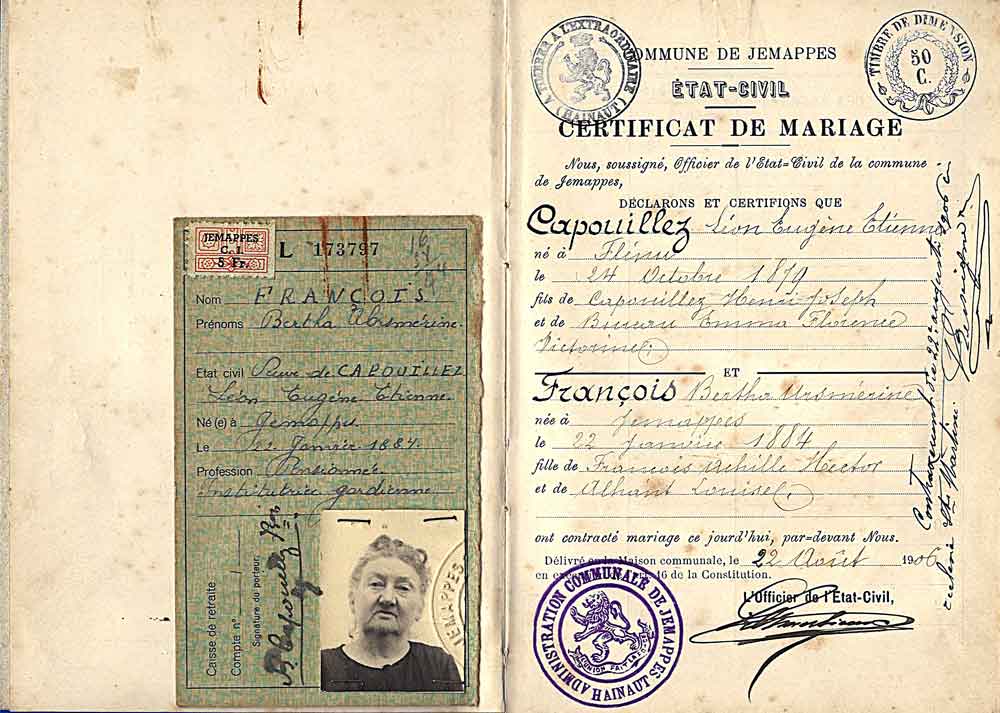 JEMAPPES
C. I.
5 Fr.
L 173797
Nom FRANÇOIS
Prénoms Bertha Ursmérine
Etat civil Veuve de CAPOUILLEZ
Léon Eugène Etienne
Né (e) à Jemappes
Le 22 Janvier 1884
Profession Pensionnée
Institutrice gardienne
Caisse de retraite
Compte n°
Signature du porteur
JEMAPPES
A TIMBRER A L'EXTRAORDINAIRE
(HAINAUT)
TIMBRE DE DIMENSION
50
C.
COMMUNE DE JEMAPPES
ÉTAT-CIVIL
CERTIFICAT DE MARIAGE
Nous, soussigné, Officier de l'Etat=Civil de la commune
de Jemappes,
DÉCLARONS ET CERTIFIONS QUE
Capouillez Léon Eugène Etienne
né à Flénu
le 24 Octobre 1879
fils de Capouillez Henri Joseph
et de Emma Florence
Victorine
ET
François Bertha Ursmérine
née à Jemappes
le 22 Janvier 1884
fille de François Achille Hector
et de Alhant Louise
ont contracté mariage ce jourd'hui, par=devant Nous.
Délivré en la Maison communale, le 22 Août 1906
en 16 de la Constitution.
L'Officier de l'Etat-Civil,
ADMINISTRATION COMMUNALE DE JEMAPPES
HAINAUT
L'UNION FAIT LA FORCE